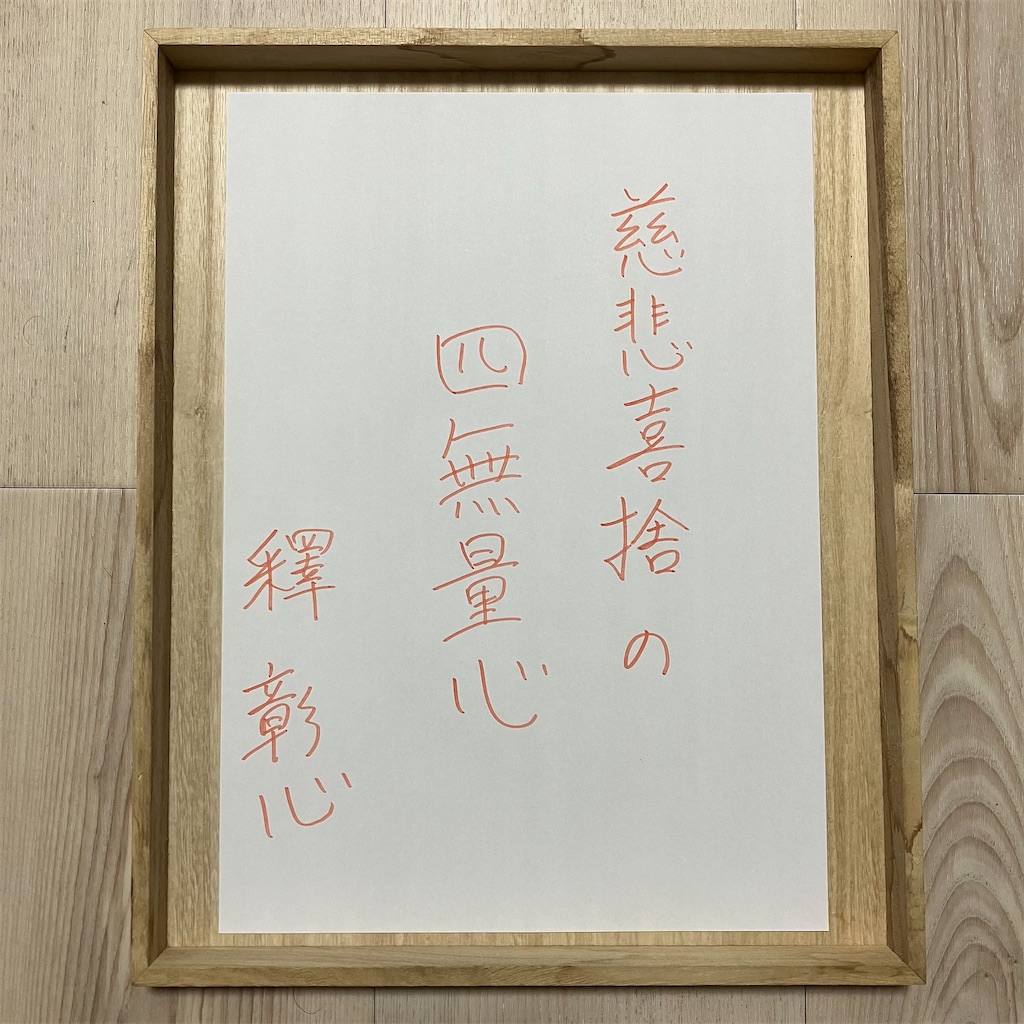 慈悲喜捨の
四無量心
釋 彰心